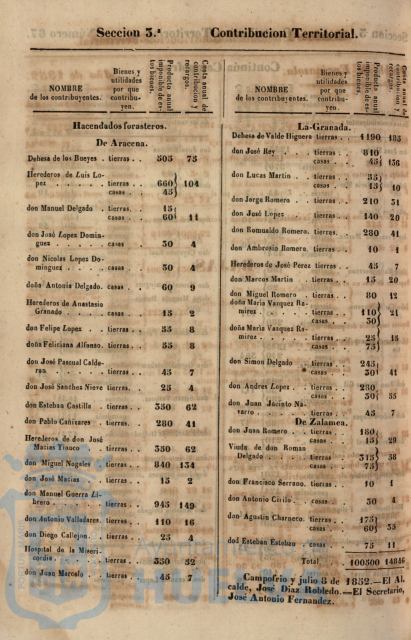 Seccion 3.ª Contribucion Territorial.
NOMBRE
de los contribuyentes.
Bienes y
utilidades
por que
contribu-
yen.
Producto anual
imponible de es-
tos bienes.
Cuota anual de
contribucion y
recargo.
Hacendados forasteros.
De Aracena.
Dehesa de los Bueyes tierras. . 505 75
Herederos de Luis Lo-
pez . . . . tierras. . 660 104
casas . . 45
don Manuel Delgado . tierras. . 15
casas . . 60 11
don José Lopez Domin-
guez . . . . casas . . 30 4
don Nicolas Lopez Do-
minguez . . . casas . . 30 4
doña Antonia Delgado. casas . . 60 9
Herederos de Anastasio
Granado . . . casas . . 15 2
don Felipe Lopez . . tierras. . 55 8
doña Feliciana Alfonso. tierras. . 55 8
don José Pascual Calde-
ron. . . . . tierras. . 45 7
don José Sanchez Nieve tierras. . 25 4
don Esteban Castilla . tierras. . 350 62
don Pablo Cañizares . tierras. . 280 41
Herederos de don José
Macias Tlauco . . tierras. . 350 62
don Miguel Nogales . tierras. . 840 134
don José Macias . . tierras. . 15 2
don Manuel Guerra Li-
brero . . . . tierras. . 945 149
don Antonio Valladares. tierras. . 110 16
don Diego Callejon. . tierras. . 25 4
Hospital de la Miseri-
cordia. . . . tierras. . 350 52
don Juan Marcelo . . tierras. . 45 7
NOMBRE
de los contribuyentes.
Bienes y
utilidades
por que
contribu-
yen.
Producto anual
imponible de es-
tos bienes.
Cuota anual de
contribucion y
recargo.
La-Granada.
Dehesa de Valde Higuera tierras. . 1190 185
don José Rey . . . tierras. . 810
casas . . 45 136
don Lucas Martin . . tierras. . 55
casas . . 15 10
don Jorge Romero . . tierras. . 210 31
don José Lopez . . tierras. . 140 20
don Romualdo Romero. tierras. . 280 41
don Ambrosio Romero. tierras. . 10 1
Herederos de José Perez tierras. . 45 7
don Marcos Martin . tierras. . 15 20
don Miguel Romero . tierras. . 80 12
doña Maria Vazquez Ra-
mirez . . . . tierras. . 110 21
30
doña Maria Vazquez Ra-
mirez . . . . tierras. . 25 15
75
don Simon Delgado . tierras. . 245
casas . . 30 41
don Andres Lopez . tierras. . 280
casas . . 30 55
don Juan Jacinto Na-
varro . . . . tierras. . 45 7
De Zalamea.
don Juan Romero . . tierras. . 180
casas . . 15 29
Viuda de don Roman
Delgado . . . tierras. . 315 58
casas . . 75
don Francisco Serrano. tierras. . 10 1
don Antonio Cirilo . casas . . 30 4
don Agustin Charneco. tierras. . 175
casas . . 60 35
don Esteban Esteban . casas . . 75 11
Total. 100500 14846
Campofrío y julio 8 de 1852.—El Al-
calde, José Diaz Robledo.—El Secretario,
José Antonio Fernandez.